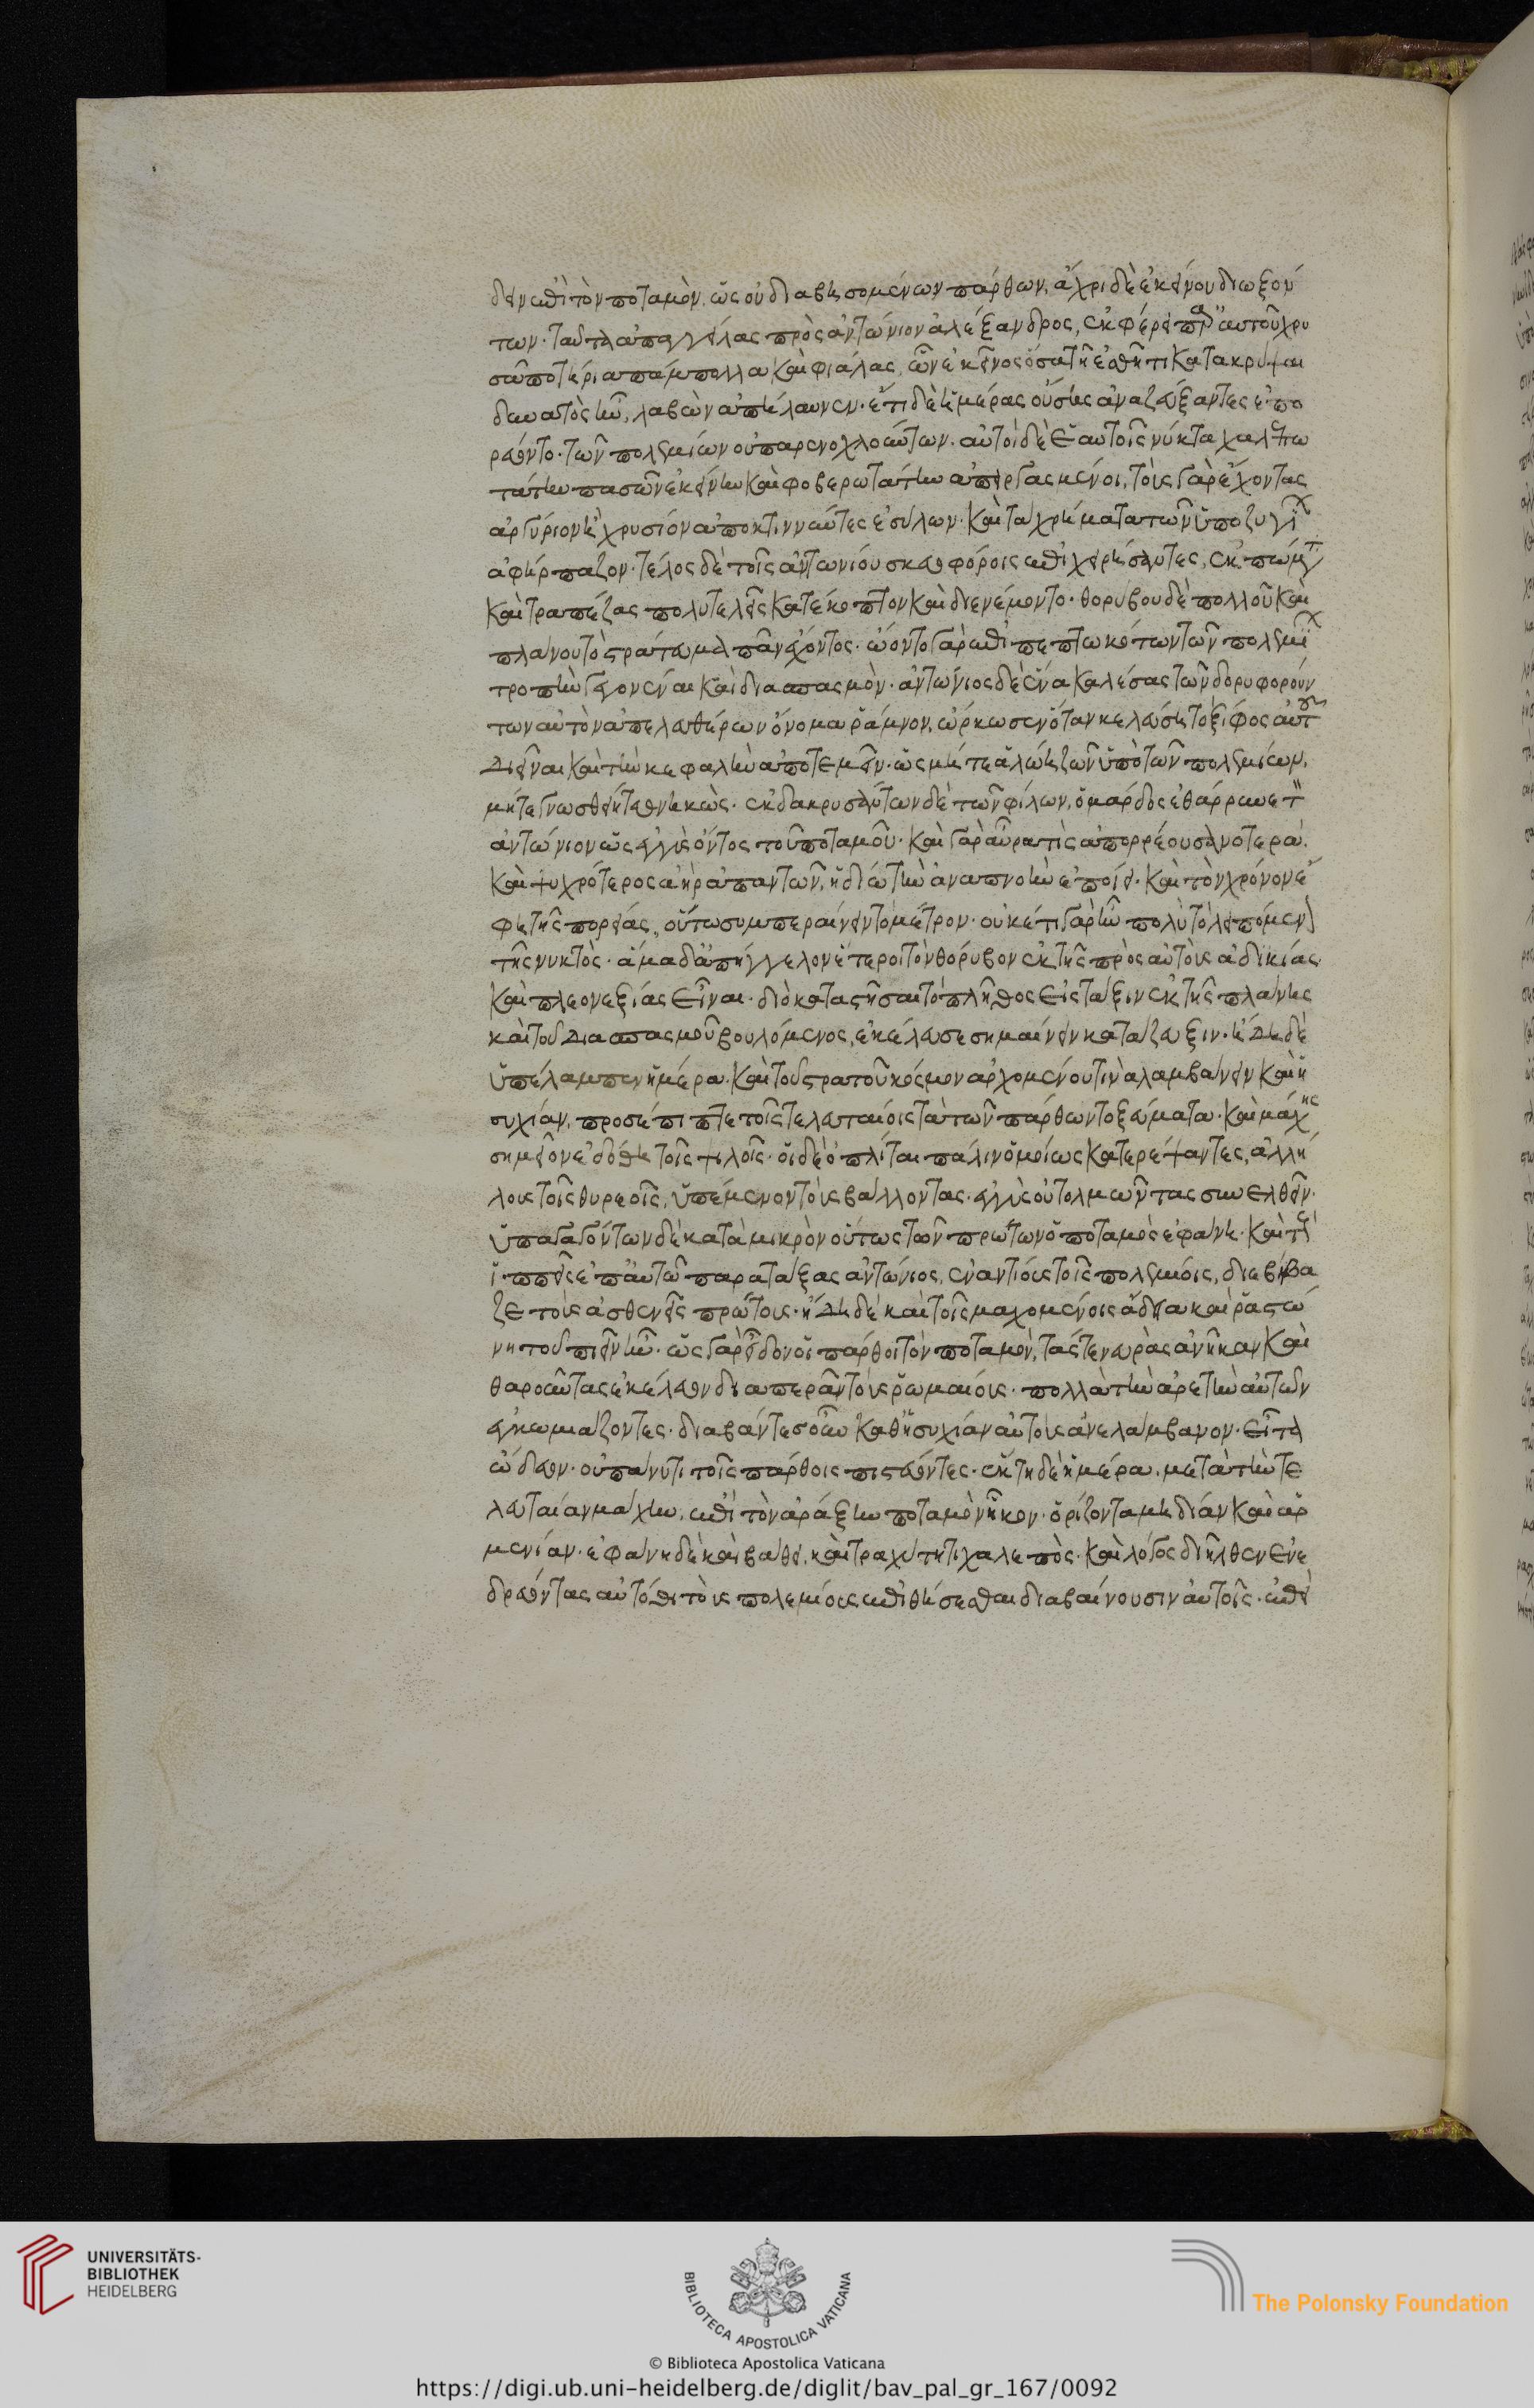 δειν ἐπὶ τὸν ποταμὸν, ὡς οὐ διαβησομένων πάρθων. ἄχρι δὲ ἐκείνου διωξόν
των. ταῦτα ἀπαγγείλας πρὸς ἀντώνιον ἀλέξανδρος, ἐκφέρει παρ αὐτοῦ χρυ
σᾶ ποτήρια πάμπολλα καὶ φιάλας, ὧν ἐκεῖνος ὅσα τῆ ἐσθῆτι κατακρύψαι
δυνατὸς ἦν, λαβὼν ἀπήλαυνεν. ἔτι δὲ ἡμέρας οὔσης ἀναζεύξαντες ἐπο
ρεύοντο. τῶν πολεμίων οὐ παρενοχλούντων. αὐτοὶ δὲ ἑαυτοῖς νύκτα χαλεπω
τάτην πασῶν ἐκείνην καὶ φοβερωτάτην ἀπειργασμένοι. τοὺς γὰρ ἔχοντας
ἀργύριον ἢ χρυσίον ἀποκτιννῦντες ἐσύλων. καὶ τὰ χρήματα τῶν ὑποζυγί
ἀφήρπαζον. τέλος δὲ τοῖς ἀντωνίου σκευοφόροις ἐπιχειρήσαντες, ἐκπώμ
καὶ τραπέζας πολυτελεῖς κατέκοπτον καὶ διενέμοντο. θορύβου δὲ πολλοῦ καὶ
πλάνου τὸ στράτευμα πᾶν ἔχοντος. ᾤοντο γὰρ ἐπιπεπτωκότων τῶν πολεμί
τροπὴν γεγονέναι καὶ διασπασμὸν. ἀντώνιος δὲ ἕνα καλέσας τῶν δορυφορούν
των αὐτὸν ἀπελευθέρων ὄνομα ῥάμνον, ὥρκωσεν ὅταν κελεύση τὸ ξίφος αὐτ
διεῖναι καὶ τὴν κεφαλὴν ἀποτεμεῖν. ὡς μήτε ἁλώη ζῶν ὑπὸ τῶν πολεμίων,
μήτε γνωσθείη τεθνηκὼς. ἐκδακρυσάντων δὲ τῶν φίλων, ὁ μάρδος ἐθάρρυνε τ
ἀντώνιον ὡς ἐγγὺς ὄντος τοῦ ποταμοῦ. καὶ γὰρ αὔρα τὶς ἀπορρέουσα νοτερά.
καὶ ψυχρότερος ἀὴρ ἀπαντῶν, ἡδίω τὴν ἀναπνοὴν ἐποίει. καὶ τὸν χρόνον ἔ
φη τῆς πορείας, οὕτω συμπεραίνειν τὸ μέτρον. οὐκέτι γὰρ ἦν πολὺ τὸ λειπόμεν
τῆς νυκτὸς. ἅμα δ' ἀπήγγελον ἕτεροι τὸν θόρυβον ἐκ τῆς πρὸς αὐτοὺς ἀδικίας
καὶ πλεονεξίας εἶναι. διὸ καταστῆσαι τὸ πλῆθος εἰς τάξιν ἐκ τῆς πλάνης
καὶ τοῦ διασπασμοῦ βουλόμενος, ἐκέλευσε σημαίνειν κατάζευξιν. ἤδη δὲ
ὑπέλαμπεν ἡμέρα. καὶ τοῦ στρατοῦ κόσμον ἀρχομένου τινὰ λαμβάνειν καὶ ἡ
συχίαν, προσέπιπτε τοῖς τελευταίοις τὰ τῶν πάρθων τοξεύματα. καὶ μάχης
σημεῖον ἐδόθη τοῖς ψιλοῖς. οἱ δὲ ὁπλῖται πάλιν ὁμοίως κατερέψαντες, ἀλλή
λους τοῖς θυρεοῖς, ὑπέμενον τοὺς βάλλοντας. ἐγγὺς οὐ τολμῶντας συνελθεῖν.
ὑπαγαγόντων δὲ κατὰ μικρὸν οὕτως τῶν πρώτων ὁ ποταμὸς ἐφάνη. καὶ τ
ἱππεῖς ἐπ' αὐτῶ παρατάξας ἀντώνιος, ἐναντίους τοῖς πολεμίοις, διεβίβα
ζε τοὺς ἀσθενεῖς πρώτους. ἤδη δὲ καὶ τοῖς μαχομένοις ἄδεια καὶ ῥαστώ
νη τοῦ πιεῖν ἦν. ὡς γὰρ εἶδον οἱ πάρθοι τὸν ποταμὸν, τάς τε νευρὰς ἀνῆκαν καὶ
θαροῦντας ἐκέλευον διαπερᾶν τοὺς ῥωμαίους. πολλὰ τὴν ἀρετὴν αὐτῶν
ἐγκωμιάζοντες. διαβάντες οὖν καθ' ἡσυχίαν αὐτοὺς ἀνελάμβανον. εἶτα
ὥδευον. οὐ πάνυ τι τοῖς πάρθοις πιστεύοντες. ἕκτη δὲ ἡμέρα. μετὰ τὴν τε
λευταίαν μάχην, ἐπὶ τὸν ἀράξην ποταμὸν ἧκον. ὁρίζοντα μηδίαν καὶ ἀρ
μενίαν. ἐφάνη δὲ καὶ βάθει, καὶ τραχύτητι χαλεπὸς. καὶ λόγος διῆλθεν ἐνε
δρεύοντας αὐτόθι τοὺς πολεμίους ἐπιθήσεσθαι διαβαίνουσιν αὐτοῖς. ἐπεὶ
UNIVERSITÄTS-
BIBLIOTHEK
HEIDELBERG
BIBLIOTECA APOSTOLICA VATICANA
The Polonsky Foundation
© Biblioteca Apostolica Vaticana
https://digi.ub.uni-heidelberg.de/diglit/bav_pal_gr_167/0092